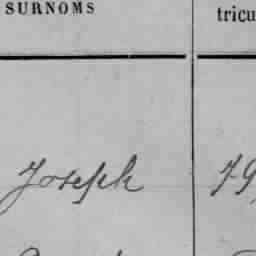 SURNOMS
tricu
Joseph
79